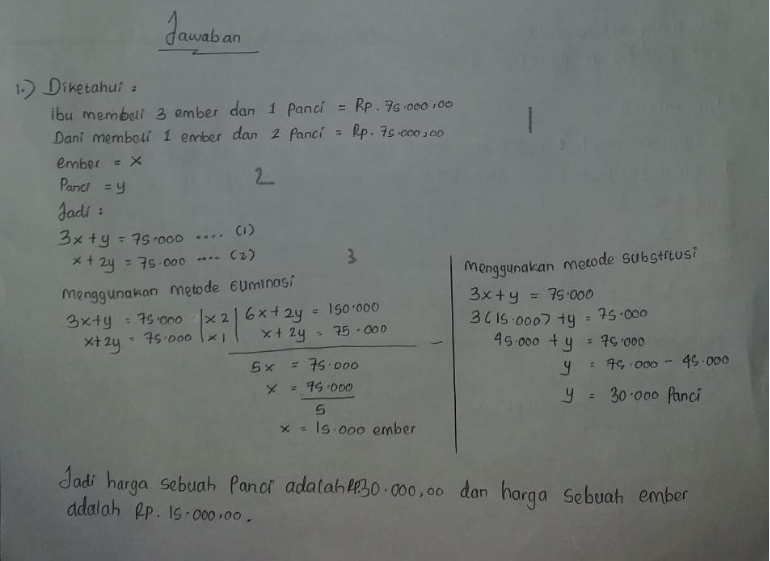 Jawaban
1.) Diketahui :
ibu membeli 3 ember dan 1 Panci = Rp. 75.000,00
1
Dani membeli 1 ember dan 2 Panci = Rp. 75.000,00
ember = x
2
Panci = y
Jadi :
3x + y = 75.000 .... (1)
x + 2y = 75.000 .... (2)
3
Menggunakan metode Eliminasi
3x+y = 75.000 | x 2 | 6x + 2y = 150.000
x+2y = 75.000 | x 1 | x + 2y = 75.000
-
5x = 75.000
x = 75.000
5
x = 15.000 ember
Menggunakan metode substitusi
3x + y = 75.000
3(15.000) + y = 75.000
45.000 + y = 75.000
y = 75.000 - 45.000
y = 30.000 Panci
Jadi harga sebuah Panci adalah RP30.000,00 dan harga sebuah ember
adalah RP. 15.000,00.